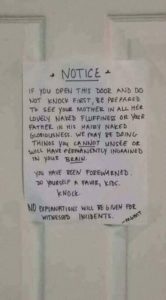 NOTICE
IF YOU OPEN THIS DOOR AND DO
NOT KNOCK FIRST, BE PREPARED
TO SEE YOUR MOTHER IN ALL HER
LOVELY NAKED FLUFFINESS OR YOUR
FATHER IN HIS HAIRY NAKED
GLORIOUSNESS. WE MAY BE DOING
THINGS YOU CANNOT UNSEE OR
WILL HAVE PERMANENTLY INGRAINED
IN YOUR BRAIN.
YOU HAVE BEEN FOREWARNED.
DO YOURSELF A FAVOR, KIDS.
KNOCK.
NO EXPLANATIONS WILL BE GIVEN FOR
WITNESSED INCIDENTS.